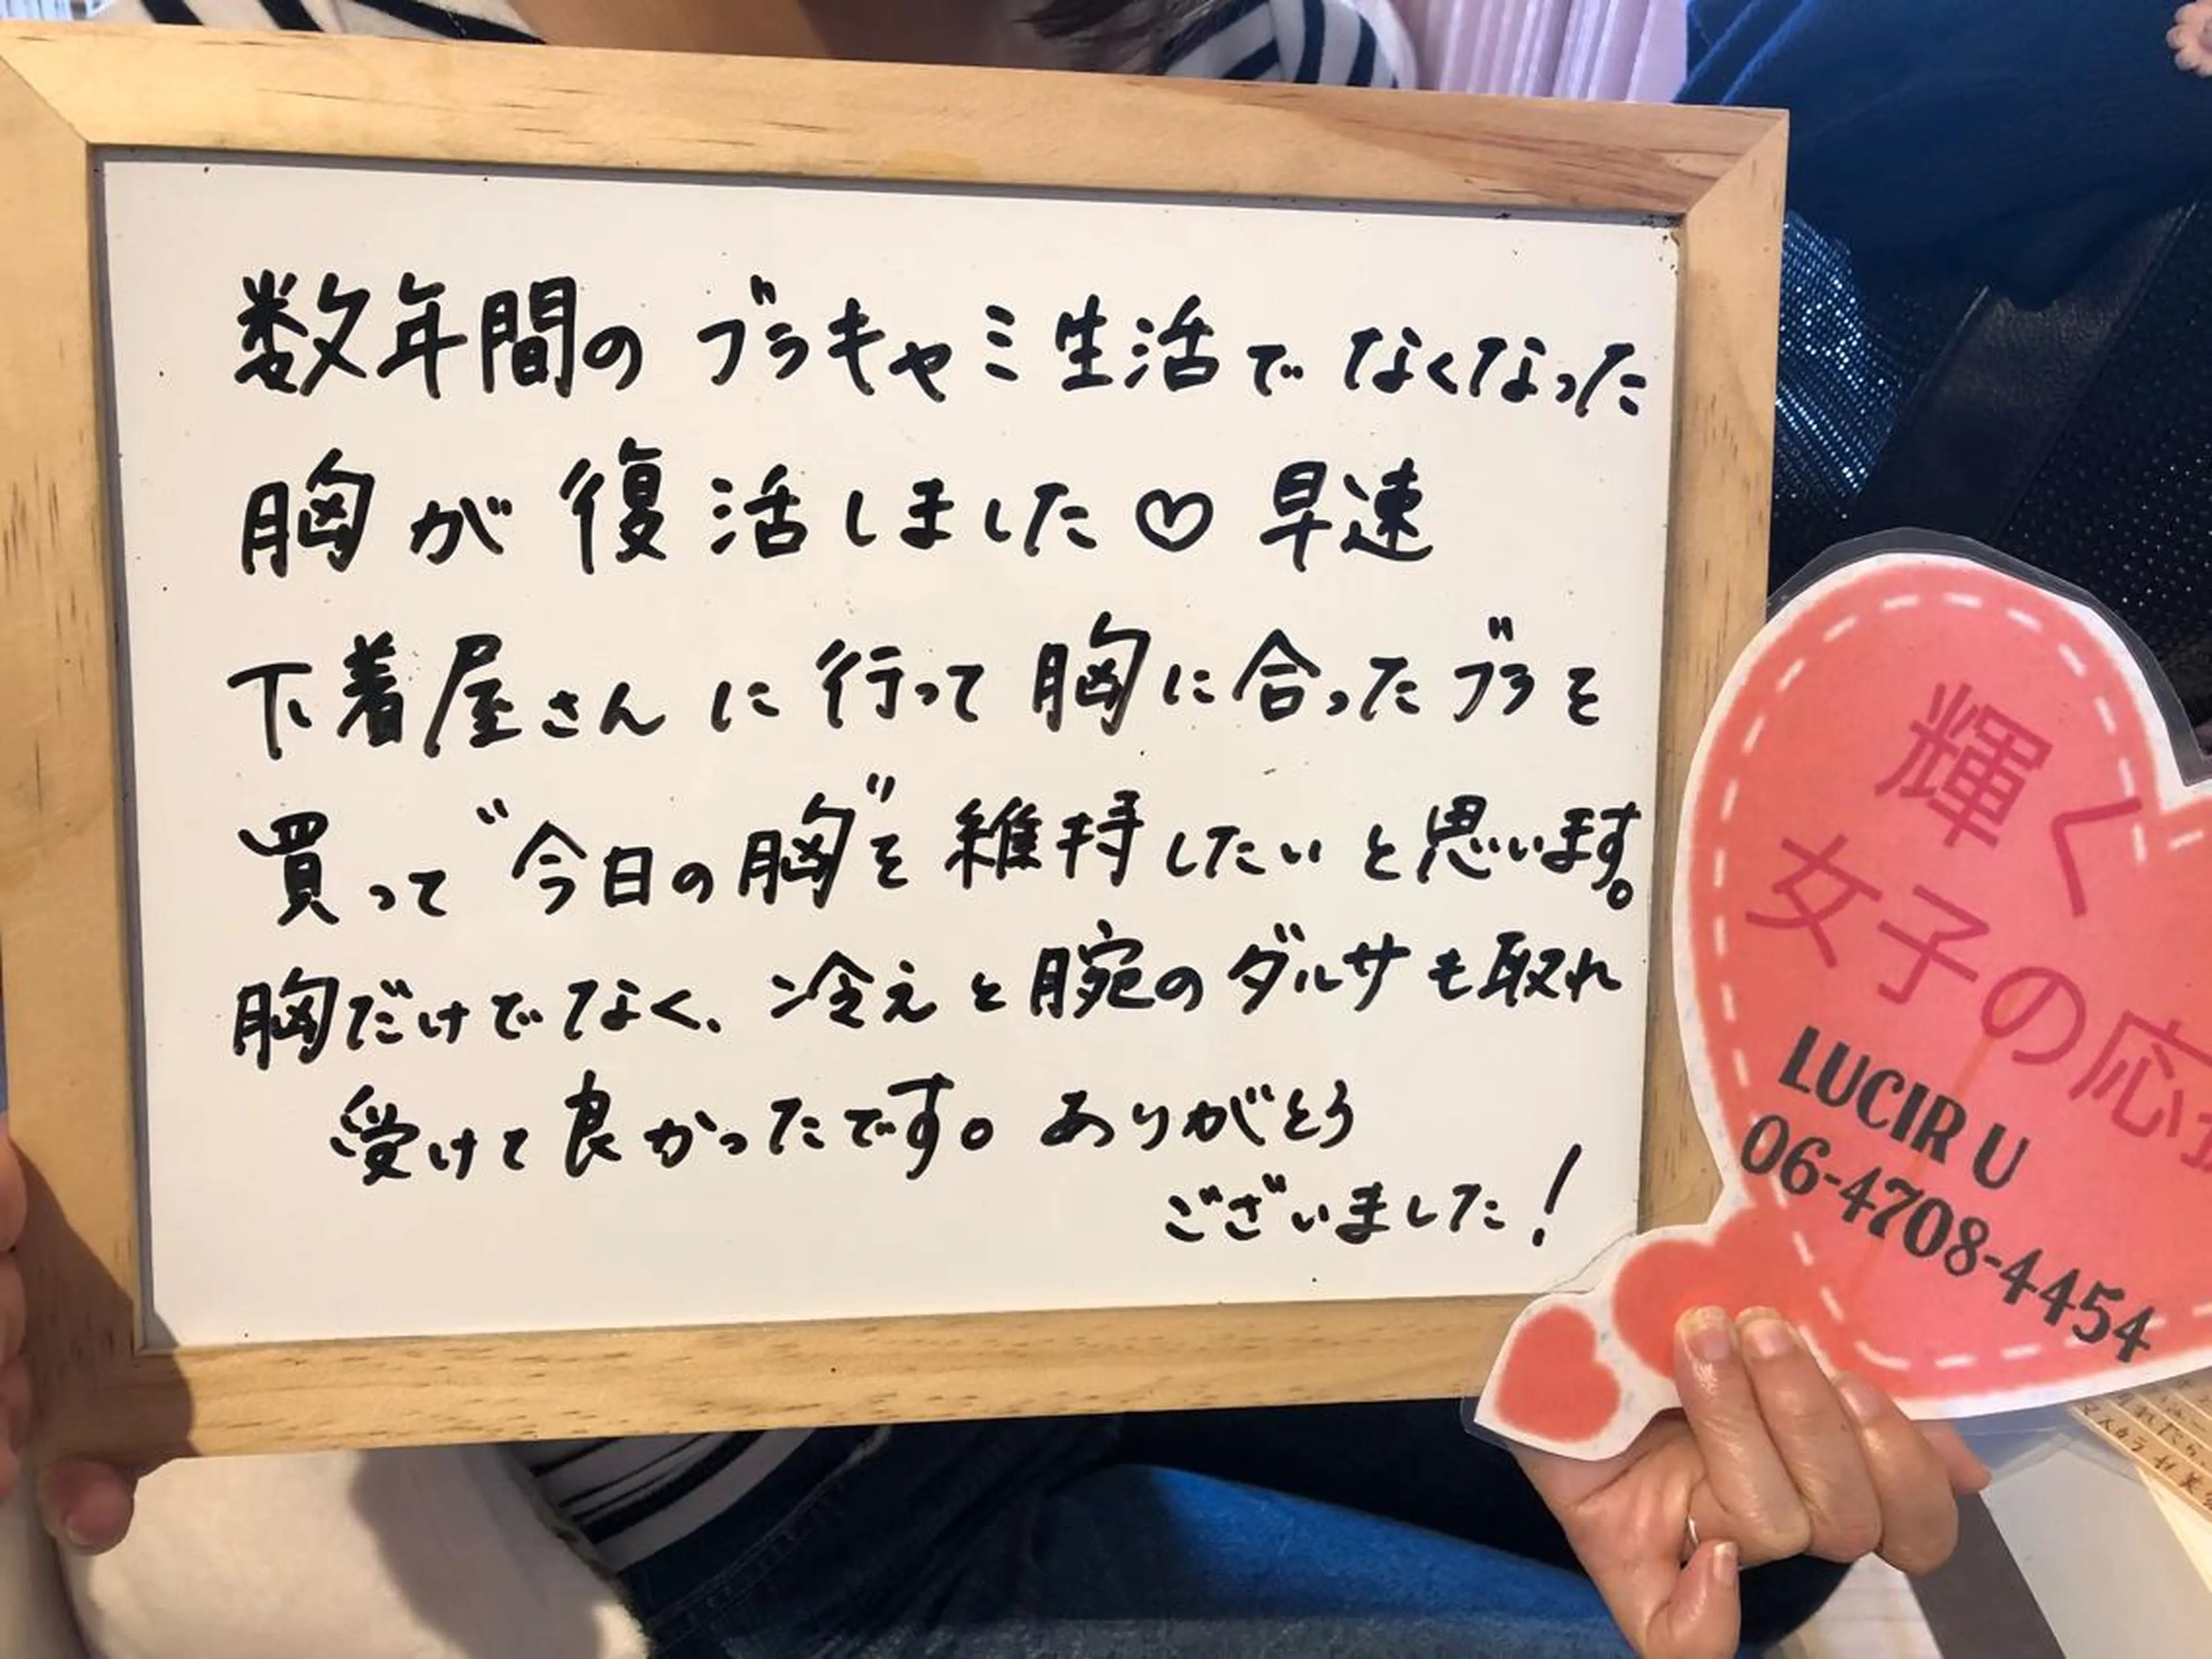 数年間の ブラキャミ生活で なくなった
胸が 復活しました♡ 早速
下着屋さんに 行って 胸に合ったブラを
買って "今日の胸"を 維持したいと思います。
胸だけでなく、冷えと腕のダルサも取れ
受けて良かったです。ありがとう
ございました!
輝く
女子の応
LUCIR U
06-4708-4454